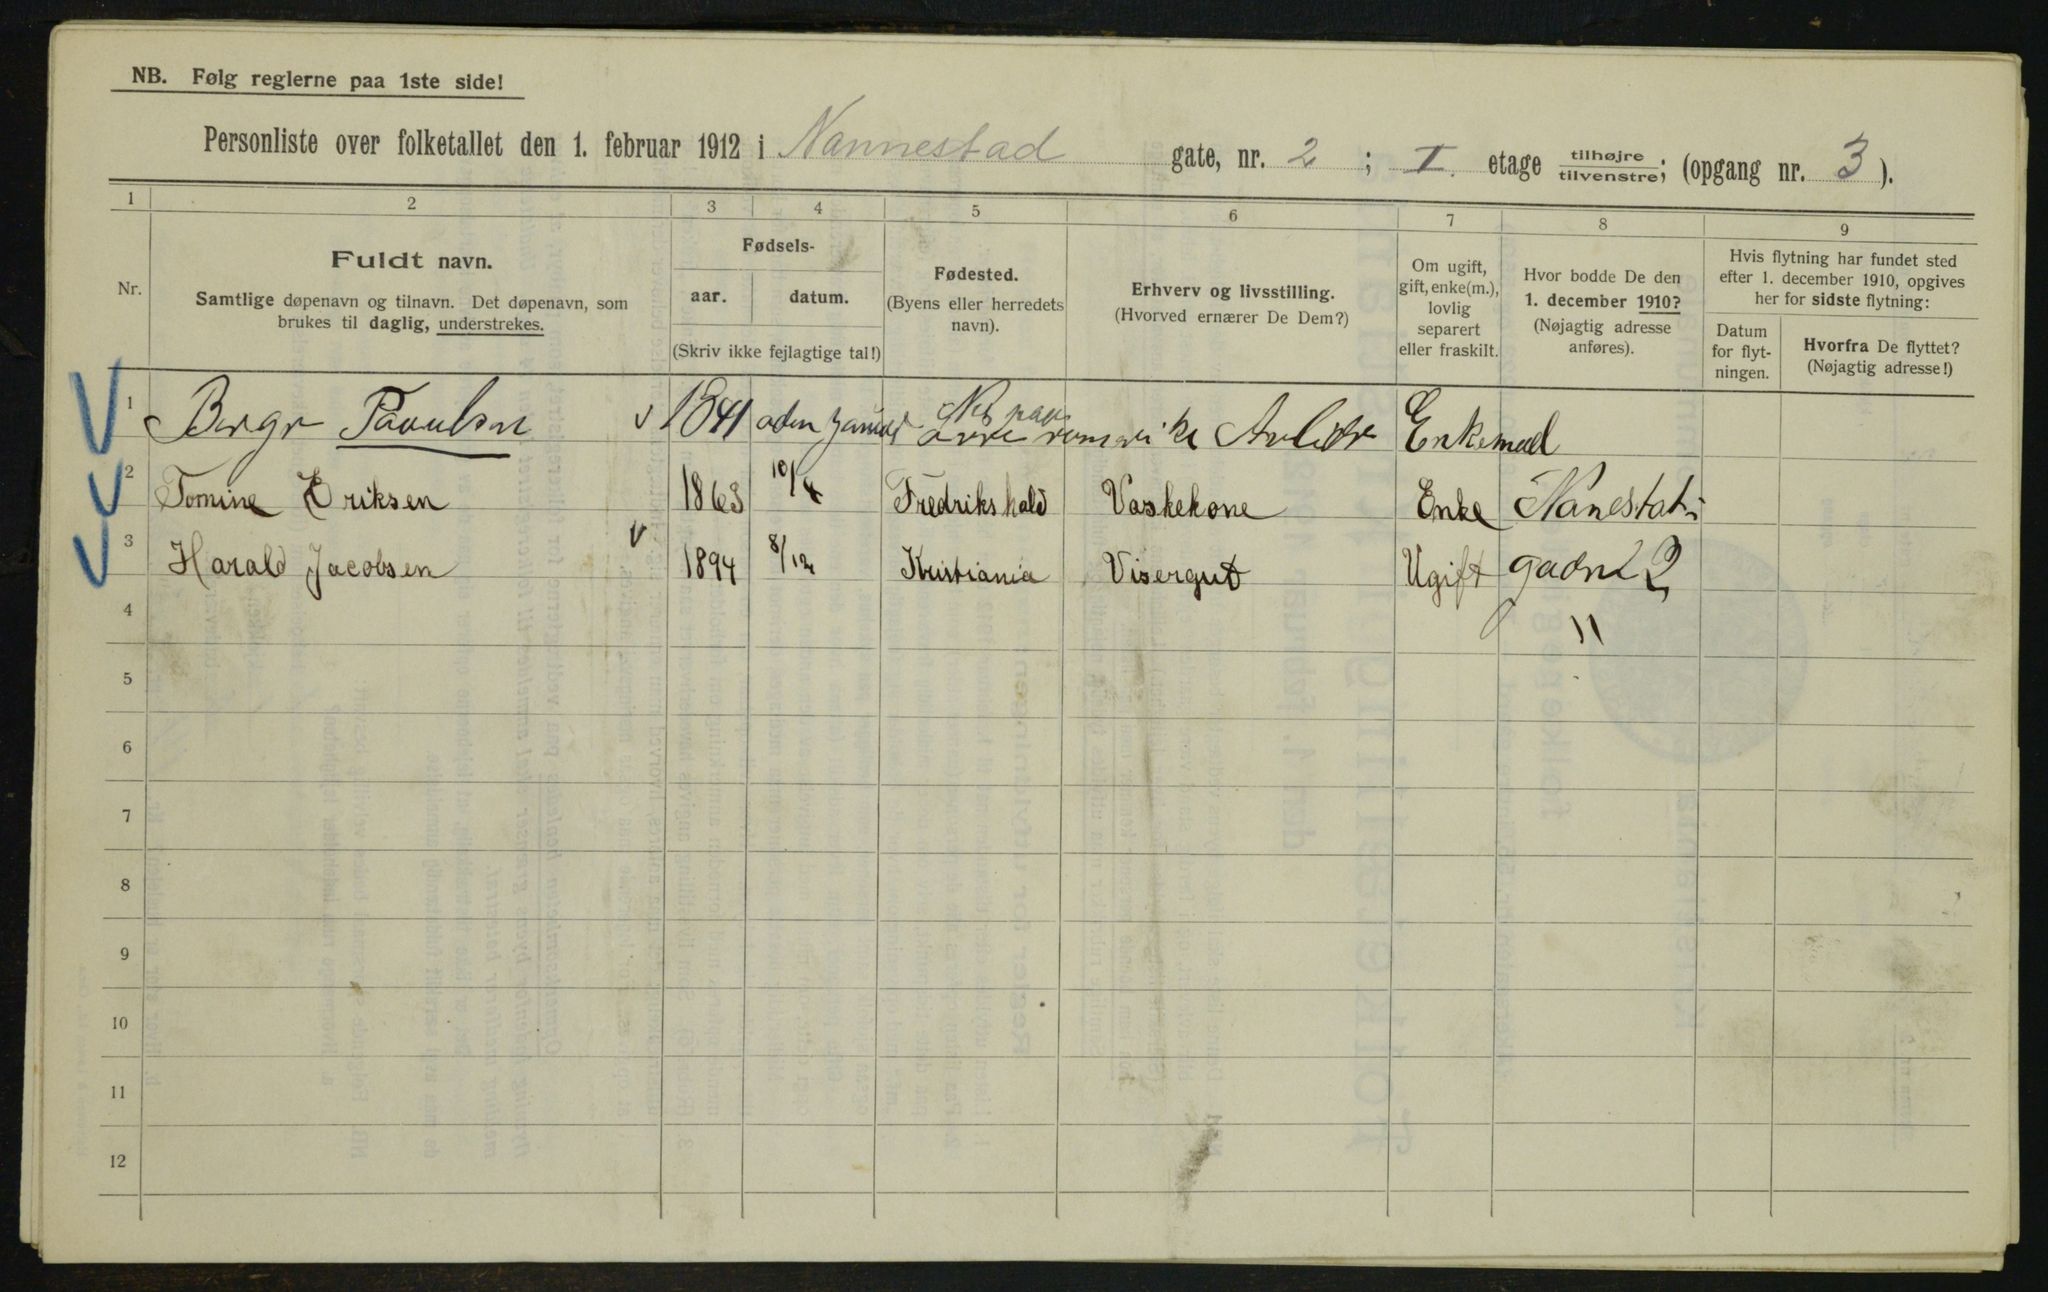 NB. Følg reglerne paa 1ste side!
Personliste over folketallet den 1. februar 1912 i Nannestad gate, nr. 2 ; I. etage tilhøjre tilvenstre; (opgang nr. 3 ).
1 2 3 4 5 6 7 8 9
Nr.
Fuldt navn.
Samtlige døpenavn og tilnavn. Det døpenavn, som
brukes til daglig, understrekes.
Fødsels-
aar. datum.
(Skriv ikke fejlagtige tal!)
Fødested.
(Byens eller herredets
navn).
Erhverv og livsstilling.
(Hvorved ernærer De Dem?)
Om ugift,
gift, enke(m.),
lovlig
separert
eller fraskilt.
Hvor bodde De den
1. december 1910?
(Nøjagtig adresse
anføres).
Hvis flytning har fundet sted
efter 1. december 1910, opgives
her for sidste flytning:
Datum
for flyt-
ningen.
Hvorfra De flyttet?
(Nøjagtig adresse!)
1 Paaulsen 1841 romerike Enkemad
2 Tomine Eriksen 1863 10/4 Fredrikshald Vaskekone Enke Nanestats
3 Harald Jacobsen 1894 8/12 Kristiania Visergut Ugift gadn 2
4 "
5
6
7
8
9
10
11
12